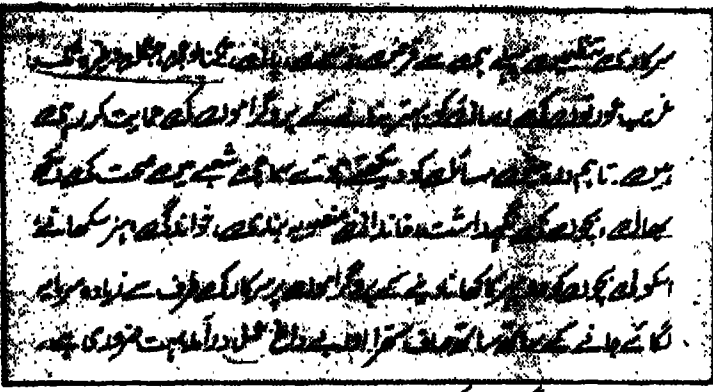 سرکاری تنظیمیں پہلے ہی سے قرضے دینے والے،
غریب عورتوں کی رسائی کو بہتر بنانے کے پروگراموں کی حمایت کر رہی
ہیں۔ تاہم درپیش مسائل کو دیکھتے ہوئے سماجی شعبے میں صحت کی دیکھ
بھال، بچوں کی نگہداشت، خاندانی منصوبہ بندی، خواندگی، ہنر سکھانے،
اسکولی بچوں کو دوپہر کا کھانا دینے کے پروگراموں پر سرکار کی طرف سے زیادہ سرمایہ
لگائے جانے کے ساتھ ساتھ صاف ستھرا اور بے داغ عمل درآمد بہت ضروری ہے۔